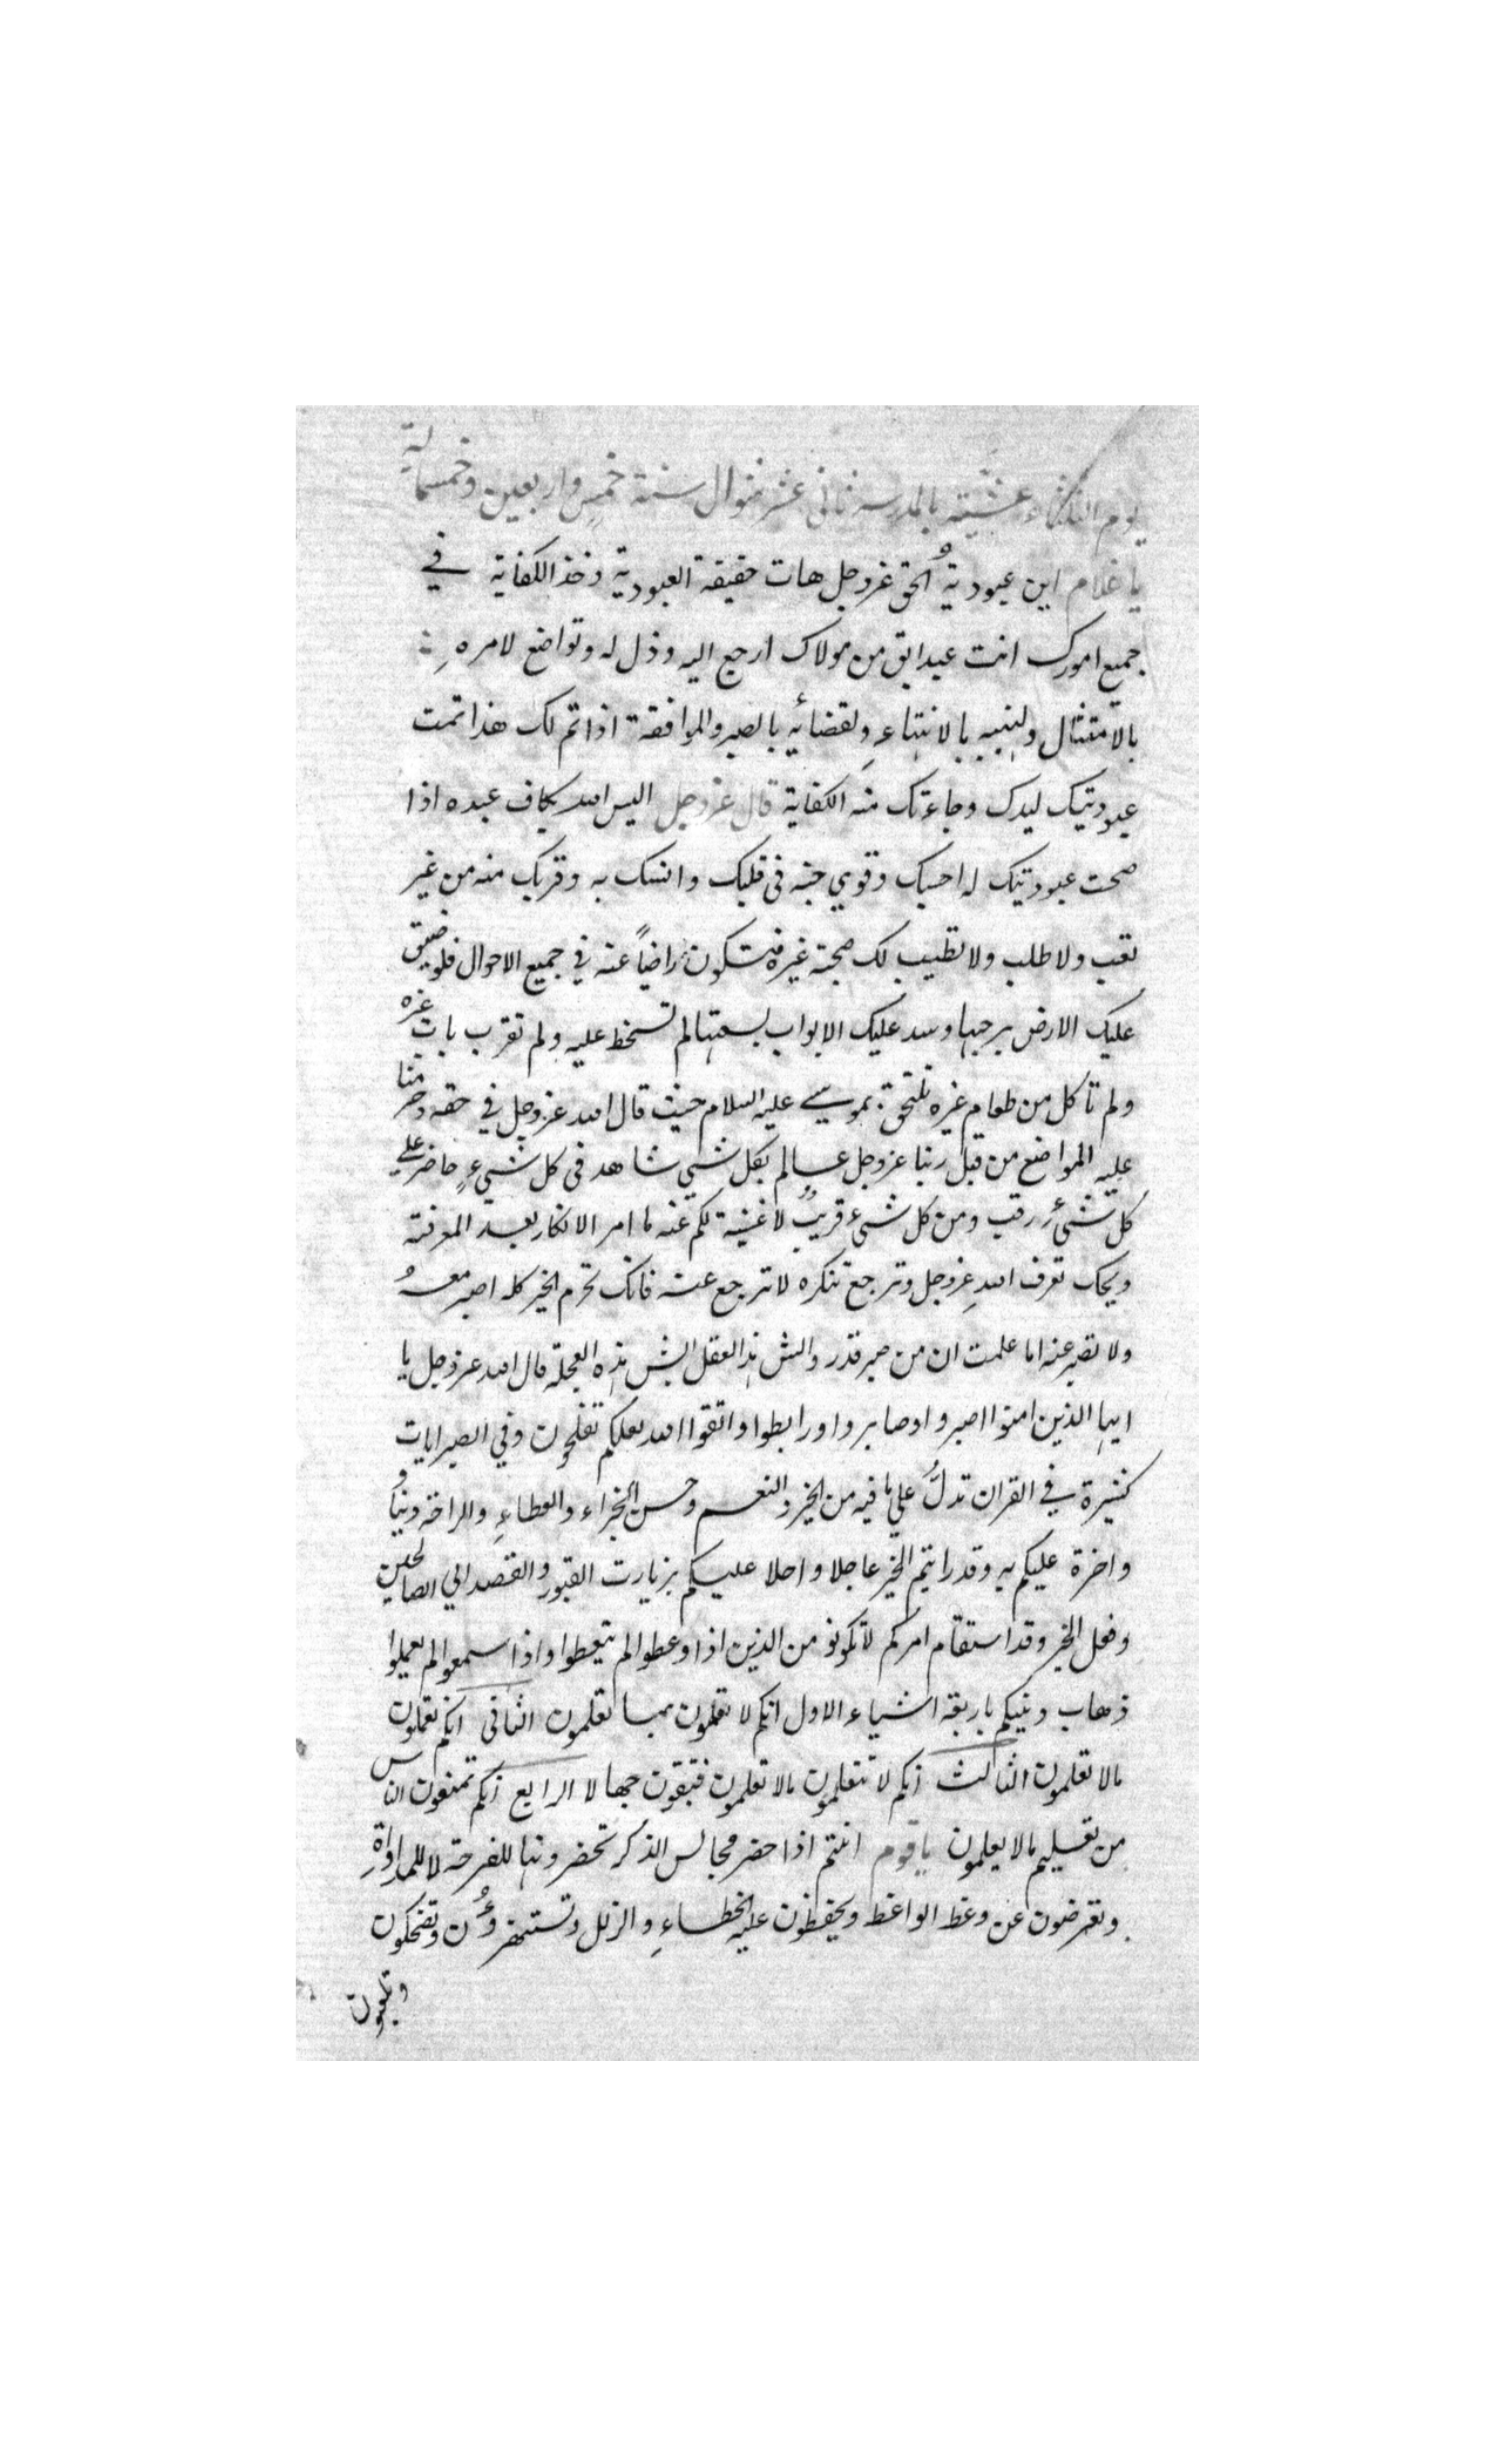 يوم الثلثاء عشية بالمدرسة ثاني عشر شوال سنة خمس واربعين وخمسمائة
يا غلام اين عبودية الحق عزوجل هات حقيقة العبودية وخذ الكفاية في
جميع امورك انت عبد ابق من مولاك ارجع اليه وذل له وتواضع لامره
بالامتثال ولنهيه بالانتهاء ولقضائه بالصبر والموافقة اذا تم لك هذا تمت
عبوديتك لسيدك وجاءتك منه الكفاية قال عزوجل اليس الله بكاف عبده اذا
صحت عبوديتك له احبك وقوي حبه في قلبك وانسك به وقربك منه من غير
تعب ولا طلب ولا تطيب لك صحبة غيره فتكون راضياً عنه في جميع الاحوال فلو ضيق
عليك الارض برحبها وسد عليك الابواب بسعتها لم تسخط عليه ولم تقرب باب غيره
ولم تاكل من طعام غيره تلتحق بموسي عليه السلام حيث قال الله عزوجل في حقه وحرمنا
عليه المراضع من قبل ربنا عزوجل عالم بكل شي شاهد في كل شيء حاضر علي
كل شيء رقيب ومن كل شيء قريبٌ لا غنية لكم عنه ما امر الانكار بعد المعرفة
ويحك تعرف الله عزوجل وترجع تنكره لا ترجع عنه فانك تحرم الخير كله اصبر معه
ولا تصبر عنه اما علمت ان من صبر قدر وايش هذا العقل ايش هذه العجلة قال الله عزوجل يا
ايها الذين امنوا اصبروا وصابروا ورابطوا واتقوا الله لعلكم تفلحون وفي الصبر ايات
كثيرة في القران تدلُّ علي ما فيه من الخير والنعم وحسن الجزاء والعطاء والراحة دنيا
واخرة عليكم به وقد رايتم الخير عاجلا واجلا عليكم بزيارت القبور والقصد الي الصالحين
وفعل الخير وقد استقام امركم لا تكونو من الذين اذا وعظوا لم يتعظوا واذا سمعوا لم يعملوا
ذهاب دينكم باربعة اشياء الاول انكم لا تعملون بما تعلمون الثاني انكم تعملون
مالا تعلمون الثالث انكم لا تتعلمون مالا تعلمون فتبقون جهالا الرابع انكم تمنعون الناس
من تعليم مالا يعلمون يا قوم انتم اذا حضر مجالس الذكر تحضرونها للفرحة لا للمداواة
وتعرضون عن وعظ الواعظ وتحفظون عليه الخطاء والزلل وتستهزؤُن وتضحكون
وتلعبون